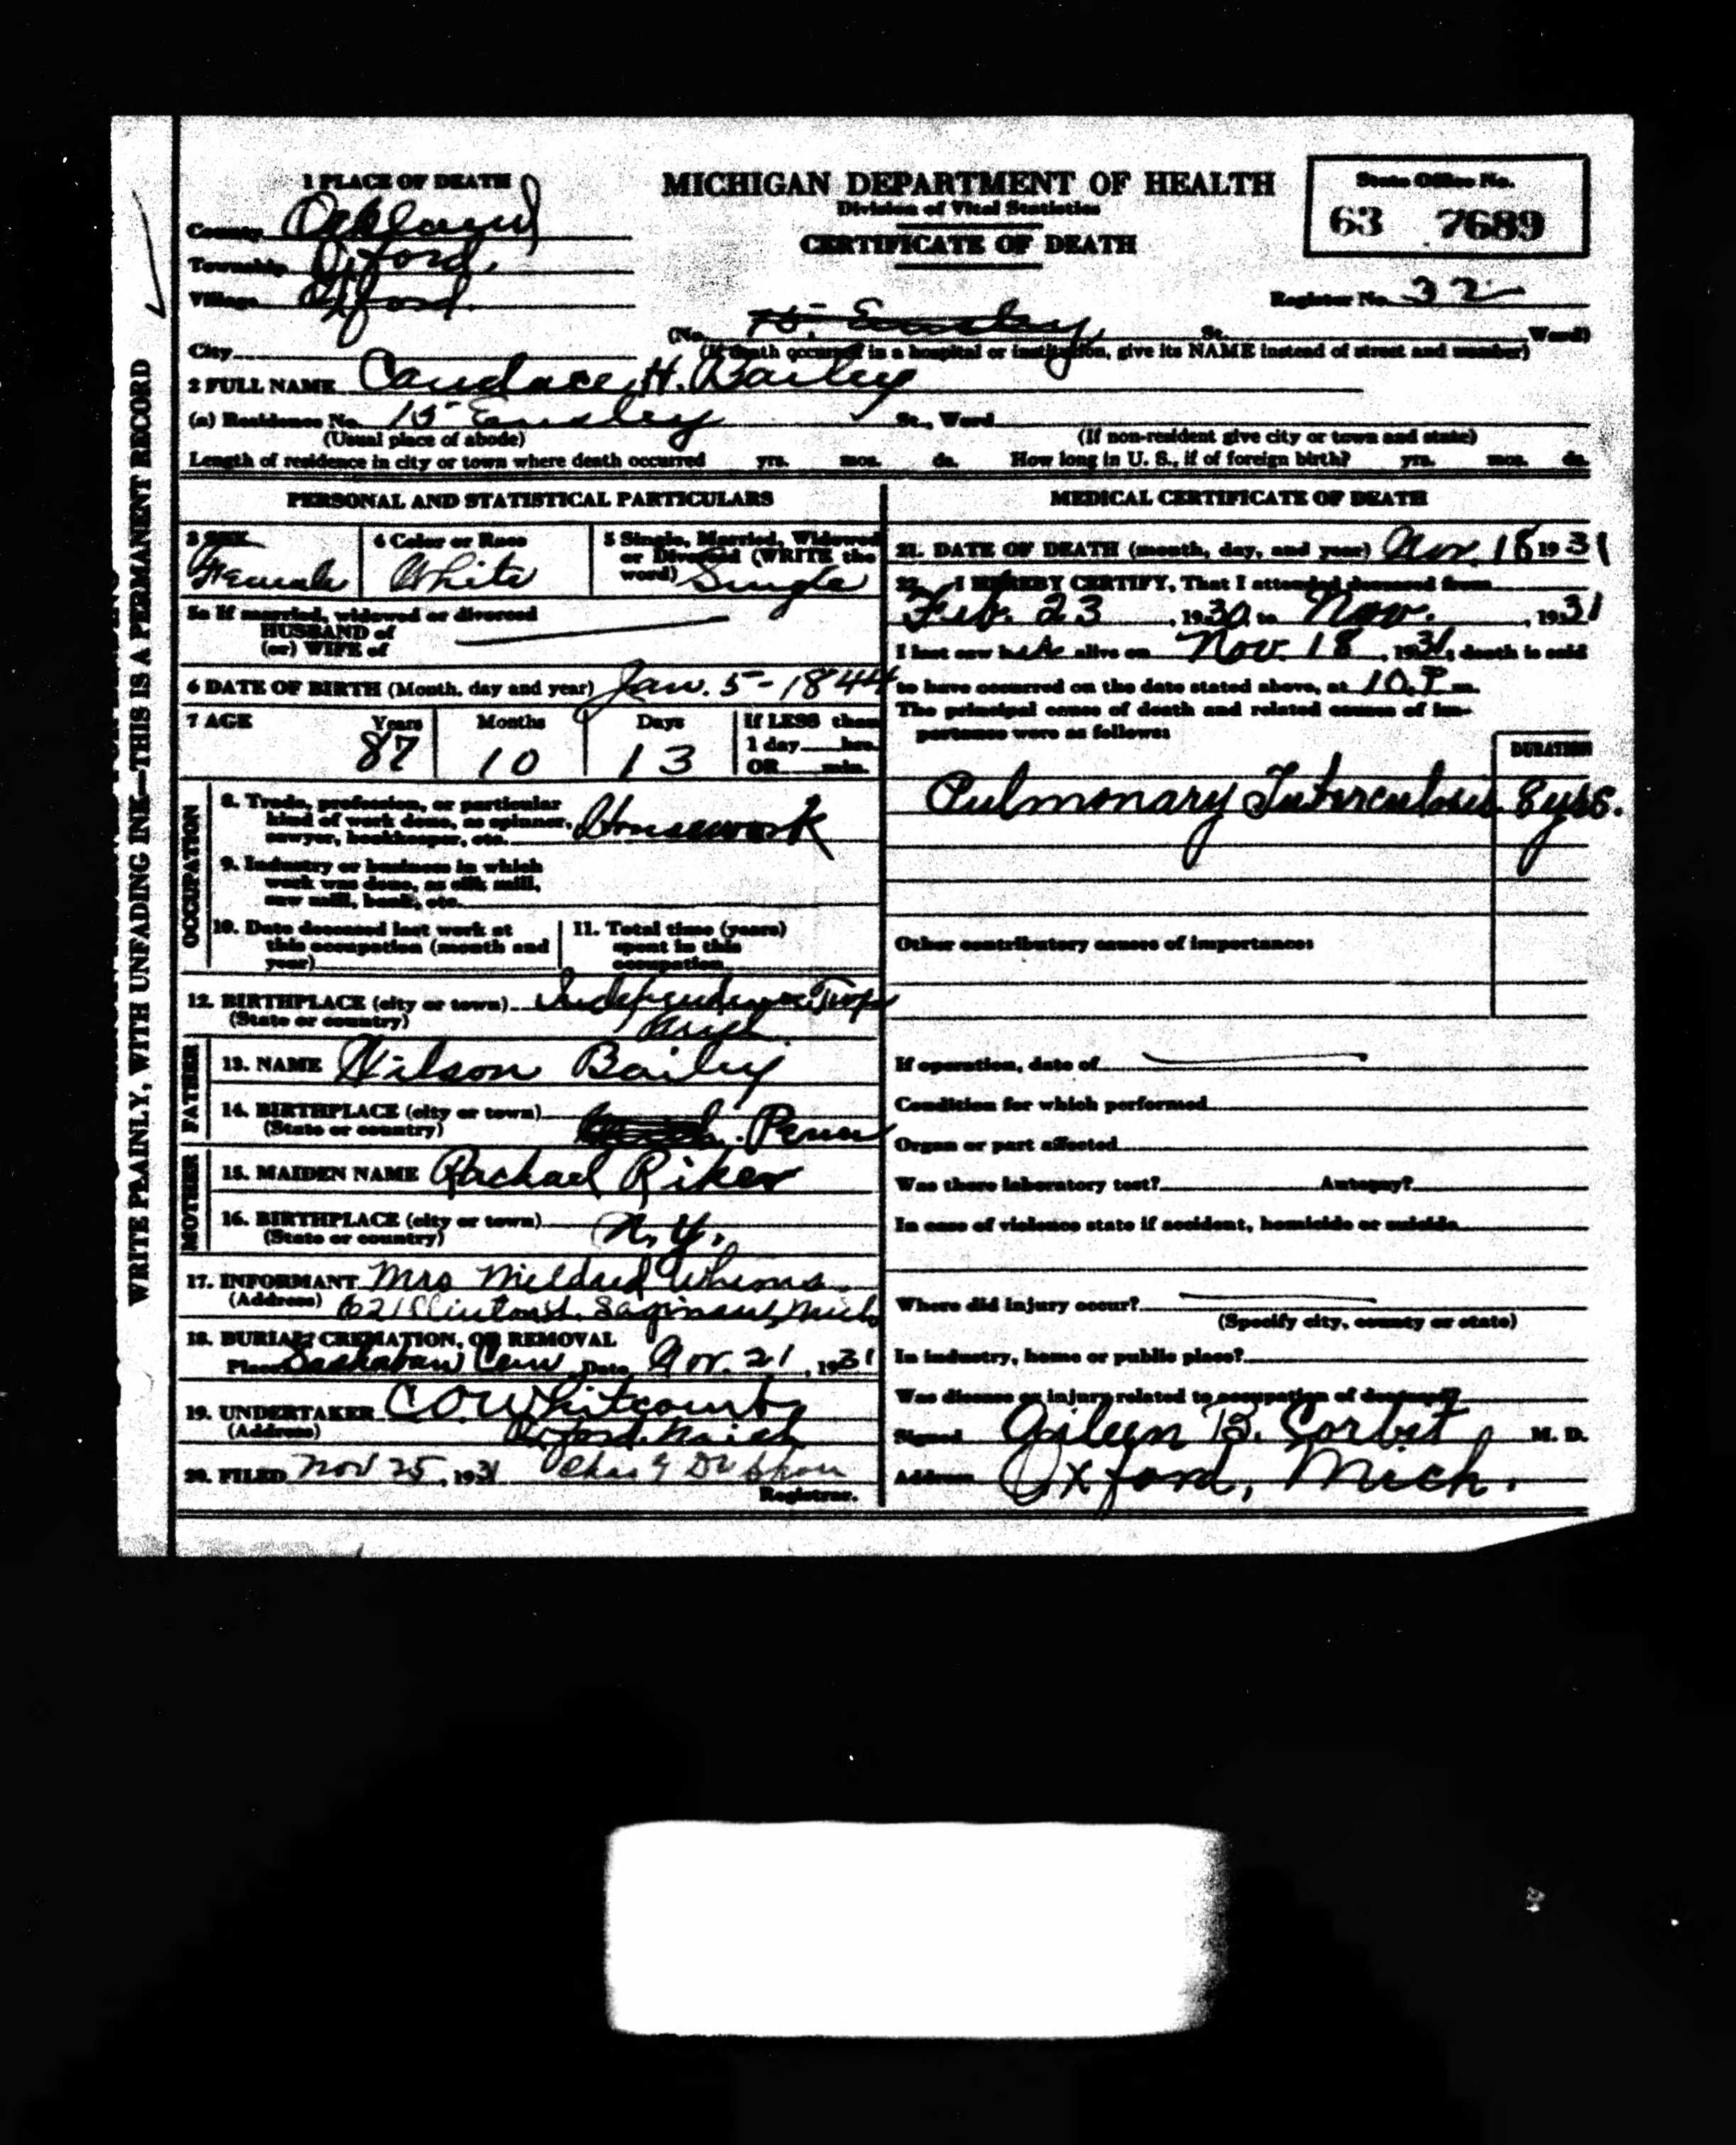 1 PLACE OF DEATH
MICHIGAN DEPARTMENT OF HEALTH
Division of Vital Statistics
CERTIFICATE OF DEATH
State Office No.
63 7689
County Oakland
Township Oxford,
Village Oxford.
Register No. 32
(No. 15, Emsley St. Ward)
(If death occurred in a hospital or institution, give its NAME instead of street and number)
City
2 FULL NAME Candace H. Bailey
(a) Residence No. 15 Emsley St., Ward
(Usual place of abode) (If non-resident give city or town and state)
Length of residence in city or town where death occurred yrs. mos. ds. How long in U. S., if of foreign birth? yrs. mos. ds.
WRITE PLAINLY, WITH UNFADING INK—THIS IS A PERMANENT RECORD
PERSONAL AND STATISTICAL PARTICULARS
3 SEX Female
4 Color or Race White
5 Single, Married, Widowed
or Divorced (WRITE the
word) Single
5a If married, widowed or divorced
HUSBAND of
(or) WIFE of
6 DATE OF BIRTH (Month, day and year) Jan. 5 - 1844
7 AGE Years 87 Months 10 Days 13 If LESS than
1 day hrs.
OR min.
OCCUPATION
8. Trade, profession, or particular
kind of work done, as spinner,
sawyer, bookkeeper, etc. Housework
9. Industry or business in which
work was done, as silk mill,
saw mill, bank, etc.
10. Date deceased last work at
this occupation (month and
year)
11. Total time (years)
spent in this
occupation
12. BIRTHPLACE (city or town) Independence Twp
(State or country) Mich
FATHER
13. NAME Wilson Bailey
14. BIRTHPLACE (city or town)
(State or country) Penn
MOTHER
15. MAIDEN NAME Rachael Riker
16. BIRTHPLACE (city or town)
(State or country) N. Y.
17. INFORMANT Mrs Mildred
(Address) 621 Clinton St. Saginaw, Mich
18. BURIAL, CREMATION, OR REMOVAL
Place Sashabaw Cem Date Nov. 21, 1931
19. UNDERTAKER C.O. Whitcomb
(Address) Oxford, Mich
20. FILED Nov 25, 1931 Chas
Registrar.
MEDICAL CERTIFICATE OF DEATH
21. DATE OF DEATH (month, day, and year) Nov. 18 1931
22. I HEREBY CERTIFY, That I attended deceased from
Feb. 23, 1930 to Nov., 1931
I last saw her alive on Nov. 18, 1931, death is said
to have occurred on the date stated above, at 10 P m.
The principal cause of death and related causes of im-
portance were as follows:
DURATION
Pulmonary Tuberculosis 8 yrs.
Other contributory causes of importance:
If operation, date of
Condition for which performed
Organ or part affected
Was there laboratory test? Autopsy?
In case of violence state if accident, homicide or suicide
Where did injury occur?
(Specify city, county or state)
In industry, home or public place?
Was disease or injury related to occupation of deceased?
Signed Aileen B. Corbit M. D.
Address Oxford, Mich.